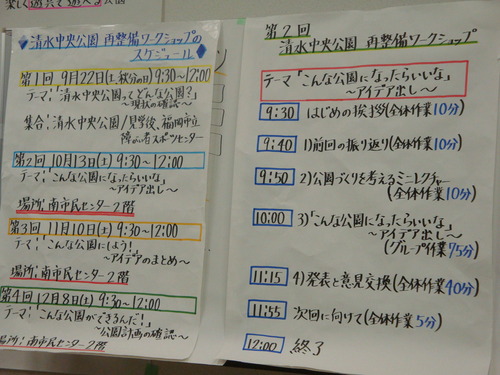 楽しく遊具で遊べる公園
清水中央公園 再整備ワークショップの
スケジュール
第1回 9月22日(土、秋分の日) 9:30～12:00
テーマ:「清水中央公園ってどんな公園?」
～現状の確認～
集合:清水中央公園/見学後、福岡市立
障がい者スポーツセンター
第2回 10月13日(土) 9:30～12:00
テーマ:「こんな公園になったらいいな」
～アイデア出し～
場所:南市民センター2階
第3回 11月10日(土) 9:30～12:00
テーマ:「こんな公園にしよう!」
～アイデアのまとめ～
場所:南市民センター2階
第4回 12月8日(土) 9:30～12:00
テーマ:「こんな公園ができるんだ!」
～公園計画の確認～
場所:南市民センター2階
第2回
清水中央公園 再整備ワークショップ
テーマ「こんな公園になったらいいな」
～アイデア出し～
9:30 はじめの挨拶(全体作業10分)
9:40 1)前回の振り返り(全体作業10分)
9:50 2)公園づくりを考えるミニレクチャー
(全体作業10分)
10:00 3)「こんな公園になったらいいな」
～アイデア出し～
(グループ作業75分)
11:15 4)発表と意見交換(全体作業40分)
11:55 次回に向けて(全体作業5分)
12:00 終了